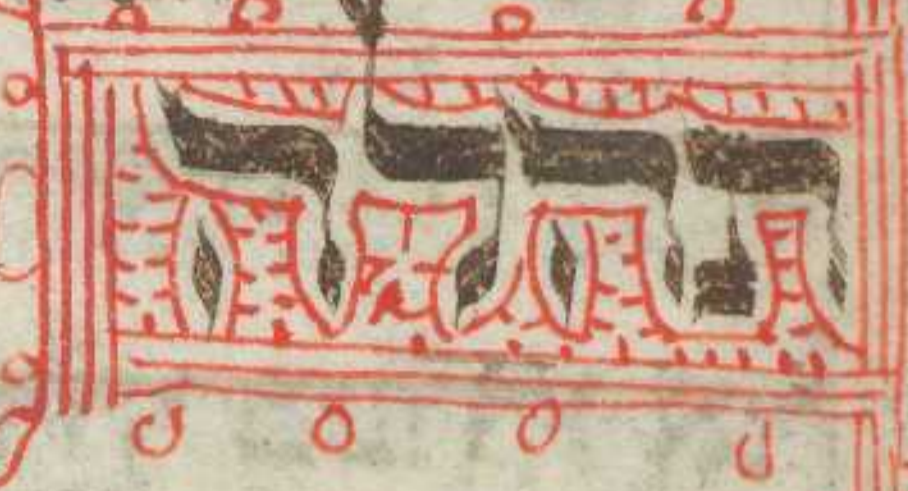 תהלה